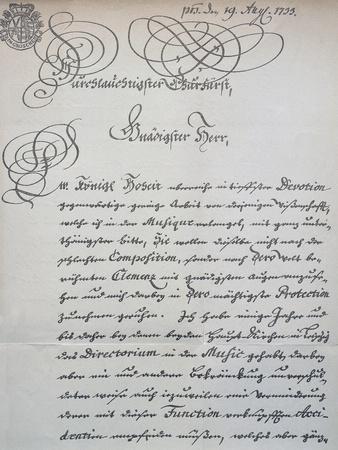 pst. den 19. Aug. 1733.
Durchlauchtigster Churfürst,
Gnädigster Herr,
Ew. Königl. Hoheit überreiche in tieffster Devotion
gegenwärtige geringe Arbeit von derjenigen Wißenschafft,
welche ich in der Musique erlanget, mit ganz unter-
thänigster Bitte, Sie wollen dieselbe nicht nach der
schlechten Composition, sondern nach Dero Welt be-
rühmten Clemenz mit gnädigsten Augen anzuse-
hen und mich darbey in Dero mächtigste Protection
zu nehmen geruhen. Ich habe einige Jahre und
bis daher bey denen beyden Haupt-Kirchen in Leipzig
das Directorium in der Music gehabt, darbey
aber ein und andere Bekränckung unverschul-
deter weise auch iezuweilen eine Verminderung
derer mit dieser Function verknüpfften Acci-
dentien empfinden müßen, welches aber gänz-